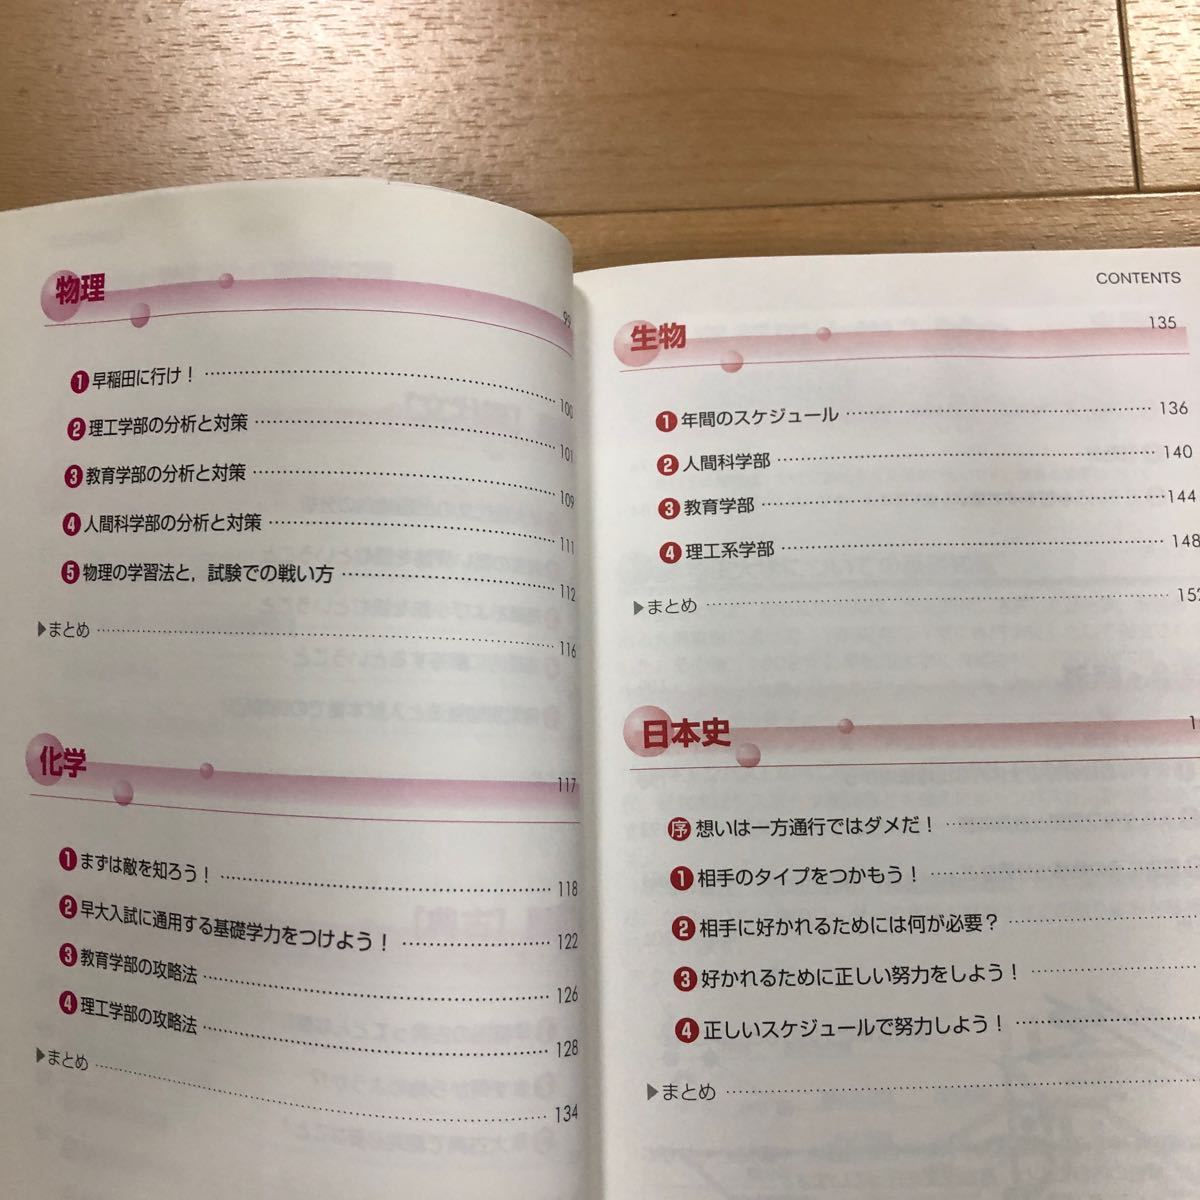 物理 99
1 早稲田に行け！ 100
2 理工学部の分析と対策 101
3 教育学部の分析と対策 109
4 人間科学部の分析と対策 111
5 物理の学習法と，試験での戦い方 112
▶まとめ 116
化学 117
1 まずは敵を知ろう！ 118
2 早大入試に通用する基礎学力をつけよう！ 122
3 教育学部の攻略法 126
4 理工学部の攻略法 128
▶まとめ 134
CONTENTS
生物 135
1 年間のスケジュール 136
2 人間科学部 140
3 教育学部 144
4 理工系学部 148
▶まとめ 152
日本史
序 想いは一方通行ではダメだ！
1 相手のタイプをつかもう！
2 相手に好かれるためには何が必要？
3 好かれるために正しい努力をしよう！
4 正しいスケジュールで努力しよう！
▶まとめ